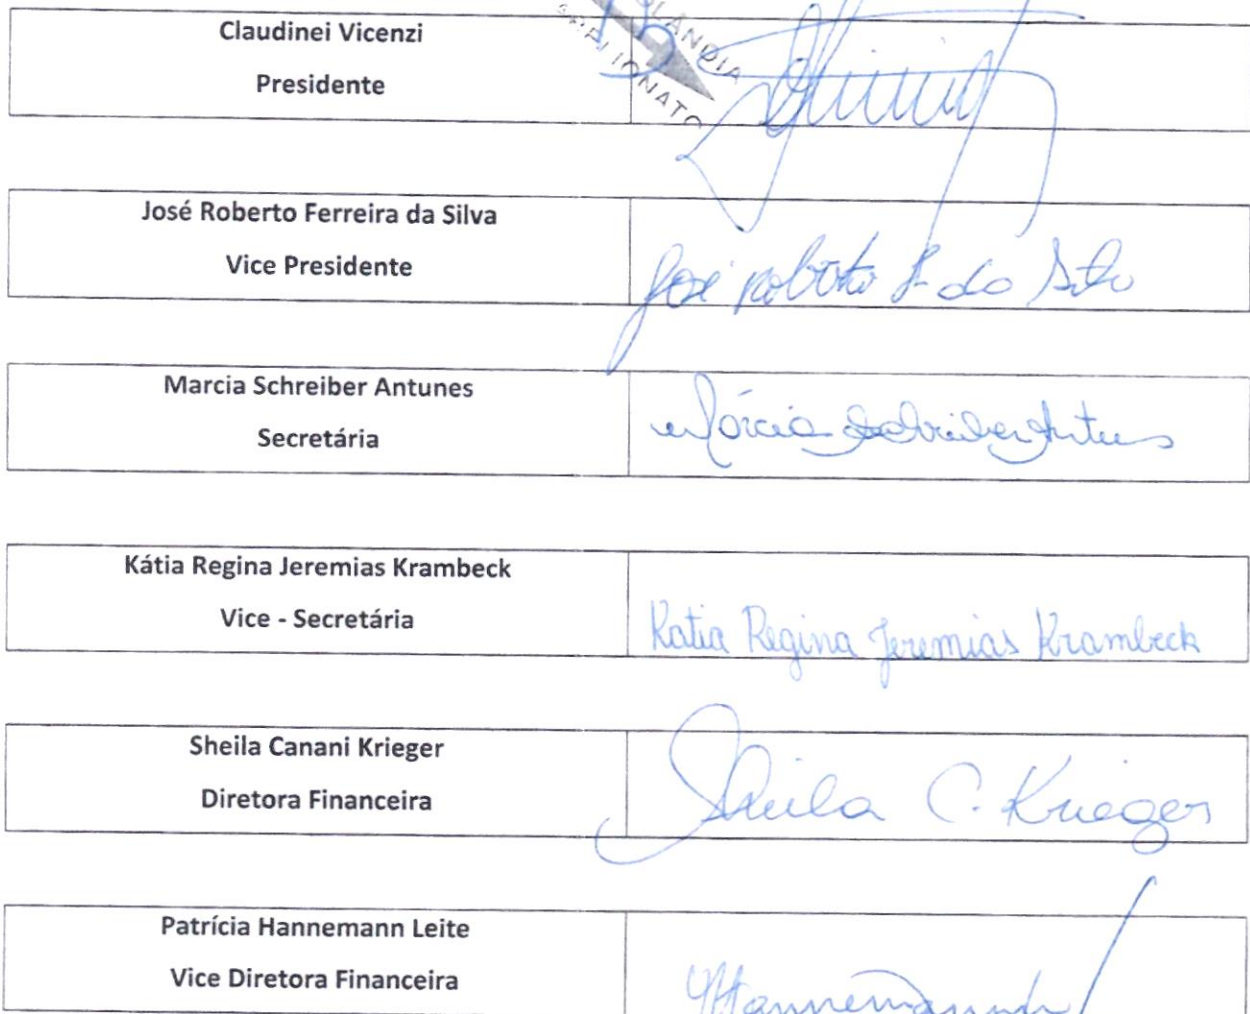 Claudinei Vicenzi
Presidente
José Roberto Ferreira da Silva
Vice Presidente
José Roberto F. da Silva
Marcia Schreiber Antunes
Secretária
Márcia Schreiber Antunes
Kátia Regina Jeremias Krambeck
Vice - Secretária
Katia Regina Jeremias Krambeck
Sheila Canani Krieger
Diretora Financeira
Sheila C. Krieger
Patrícia Hannemann Leite
Vice Diretora Financeira